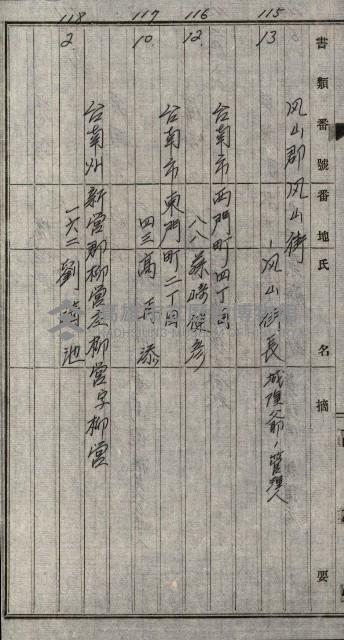 書類番號 番地 氏名 摘要
115
13
凤山郡凤山街
凤山街長 城隍爺ノ管理人
116
12
台南市西門町四丁目
八八 藤崎 彦
117
10
台南市東門町二丁目
四三 高再添
118
2
台南州新營郡柳營庄柳營字柳營
一六二 劉 池